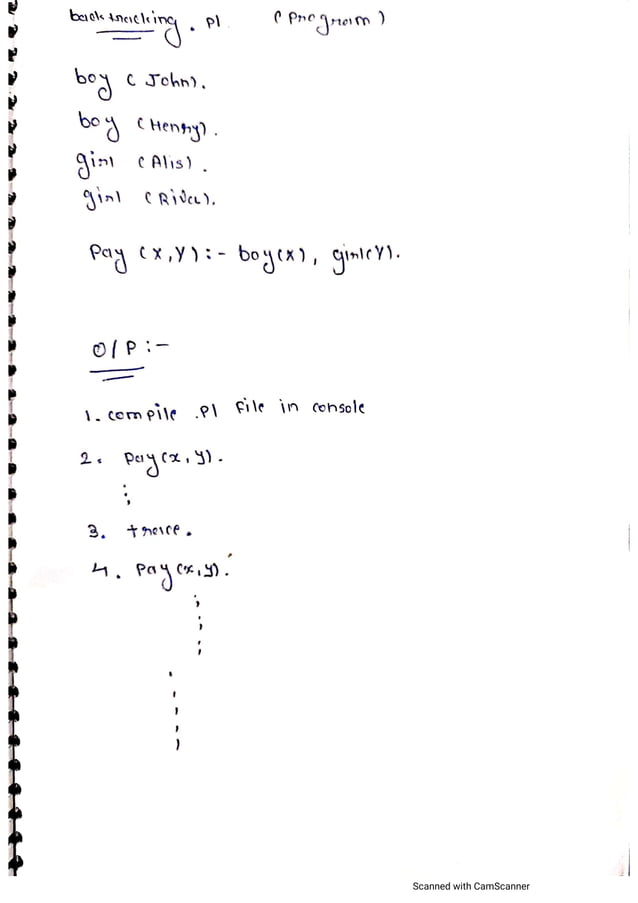 backtracking.pl (Program)
boy (John).
boy (Henry).
girl (Alis).
girl (Rivee).
Pay (X,Y):- boy(X), girl(Y).
O/P :-
1. compile .Pl File in console
2. Pay(x,y).
;
;
3. trace.
4. Pay(x,y).
;
;
;
Scanned with CamScanner